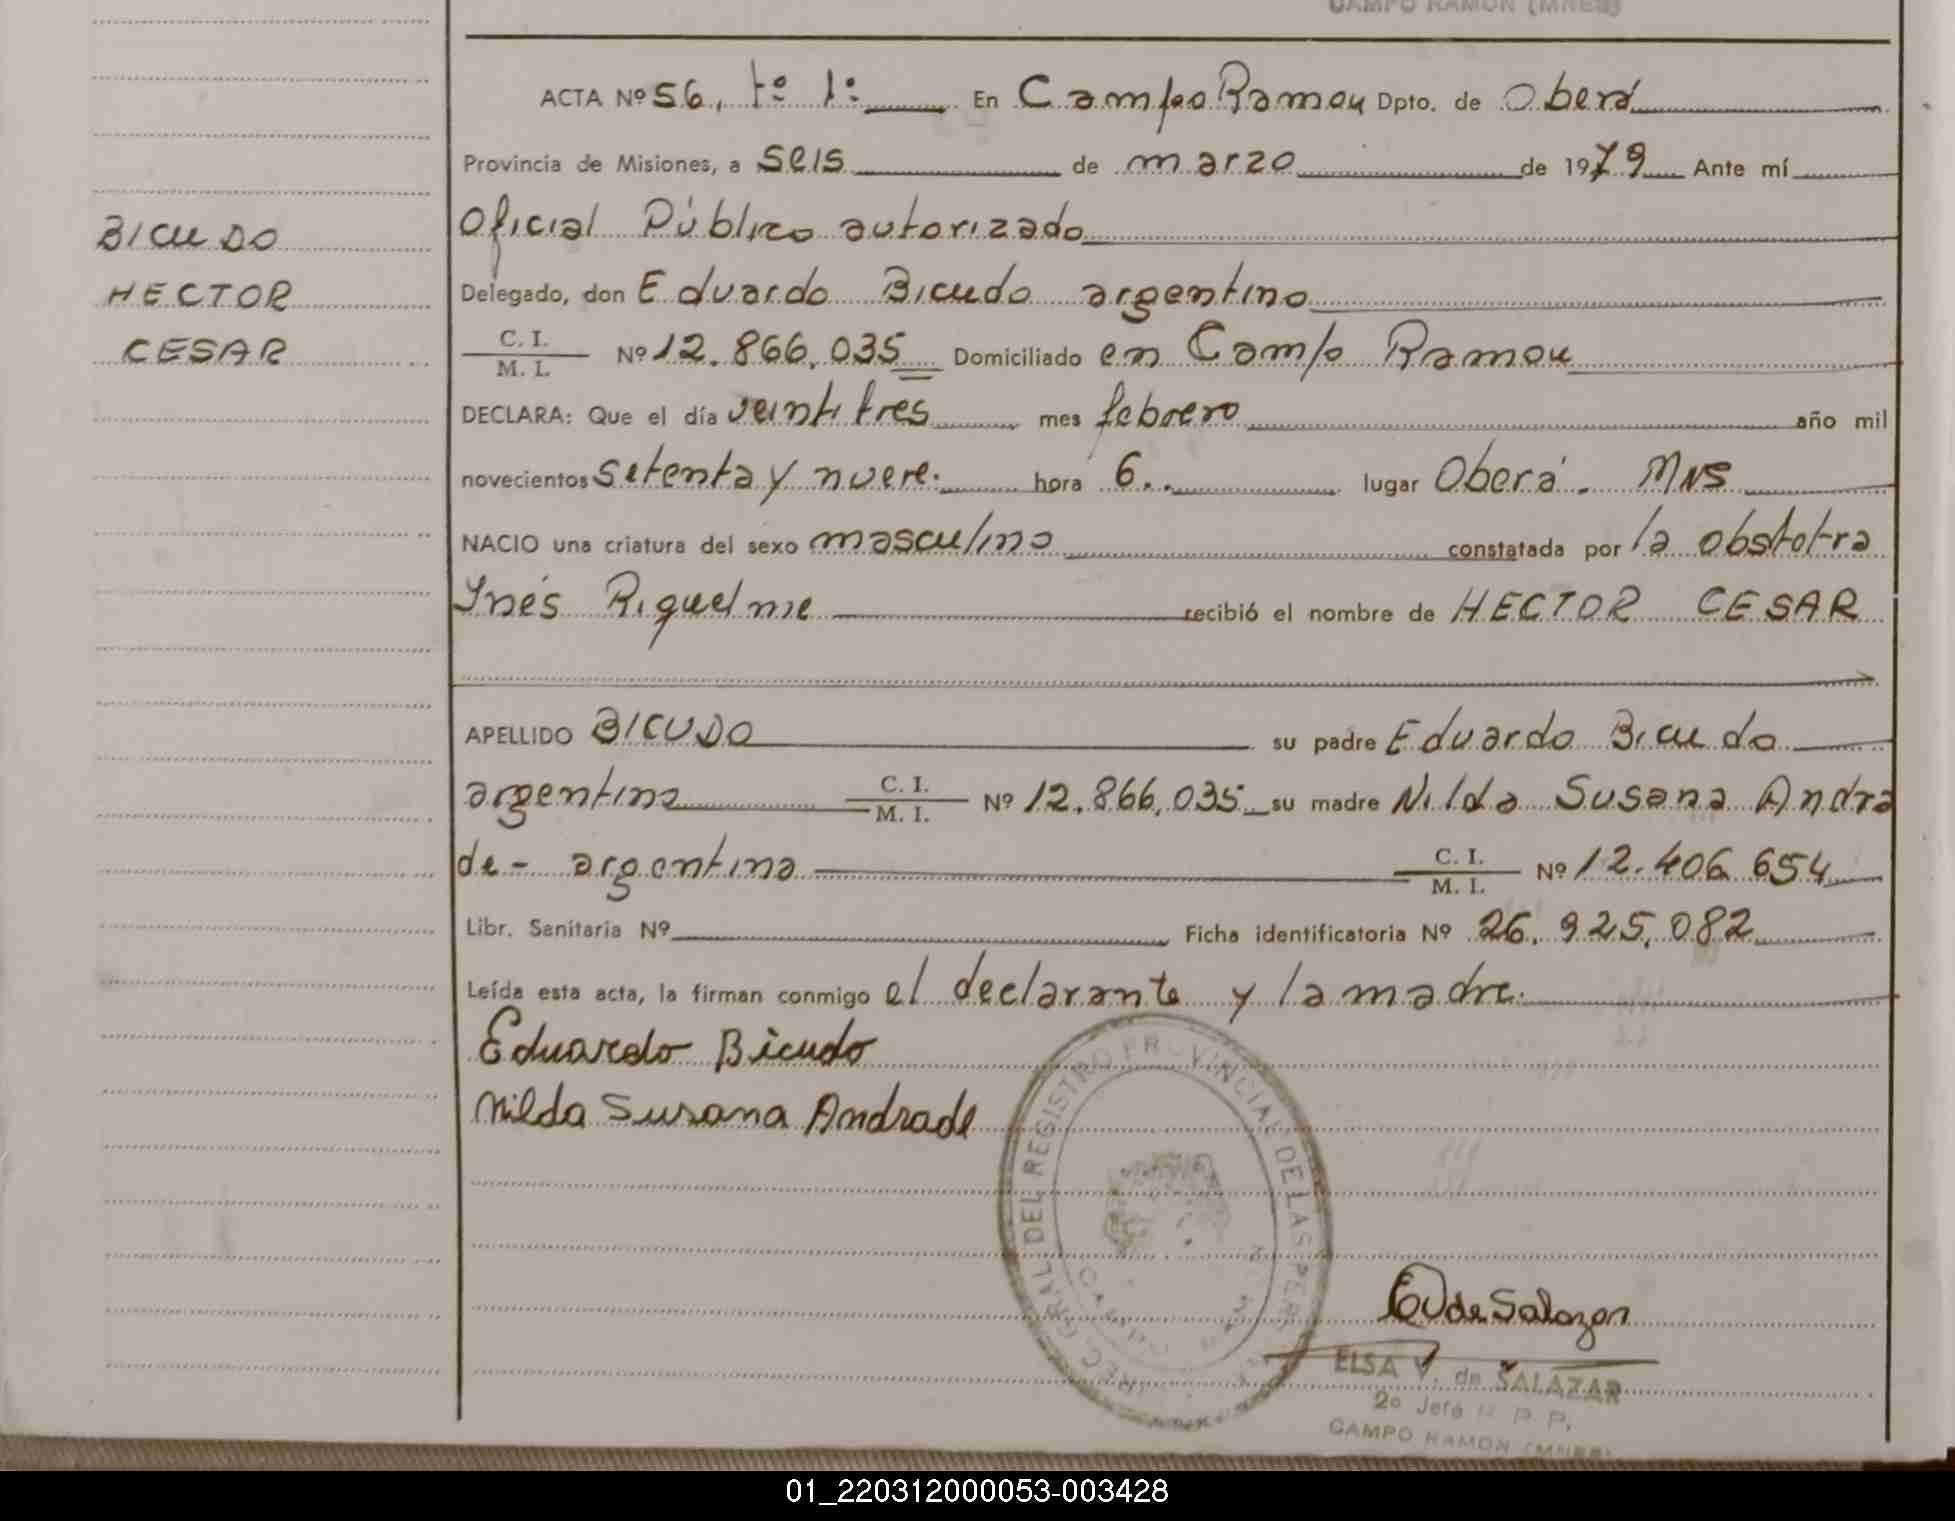 CAMPO RAMON (MNES)
ACTA Nº 56, tº 1º En Campo Ramon Dpto. de Obera
Provincia de Misiones, a seis de marzo de 1979 Ante mí
Oficial Público autorizado
BICUDO
Delegado, don Eduardo Bicudo argentino
HECTOR
C. I. / M. I. Nº 12.866.035 Domiciliado en Campo Ramon
CESAR
DECLARA: Que el día veintitres mes febrero año mil
novecientos setenta y nueve. hora 6.. lugar Oberá. MNS
NACIO una criatura del sexo masculino constatada por la obstetra
Inés Riquelme recibió el nombre de HECTOR CESAR
APELLIDO BICUDO su padre Eduardo Bicudo
argentino C. I. / M. I. Nº 12.866.035 su madre Nilda Susana Andra
de- argentina C. I. / M. I. Nº 12.406.654
Libr. Sanitaria Nº Ficha identificatoria Nº 26.925.082
Leída esta acta, la firman conmigo el declarante y la madre.
Eduardo Bicudo
Nilda Susana Andrade
DIREC. GRAL. DEL REGISTRO PROVINCIAL DE LAS PERS
CAMPO
EV de Salazar
ELSA V. de SALAZAR
2º Jefe R P P.
CAMPO RAMON (MNES)
01_220312000053-003428